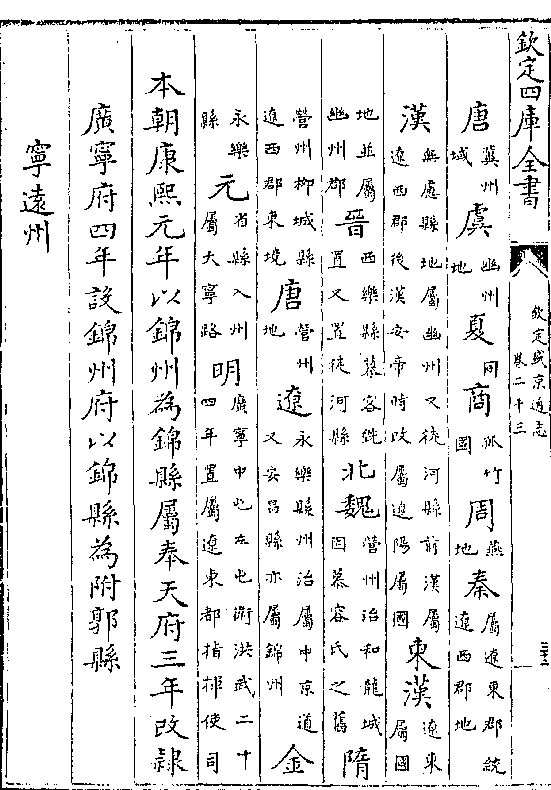 欽定四庫全書
欽定盛京通志
卷二十三
唐冀州域虞幽州地夏同商孤竹國周燕地秦屬遼東郡統遼西郡地
漢無慮縣地屬幽州又徒河縣前漢屬遼西郡後漢安帝時改屬遼陽屬國東漢遼東屬國
地並屬幽州郡晉西樂縣慕容皝置又置徒河縣北魏營州治和龍城因慕容氏之舊隋
營州柳城縣遼西郡東境唐營州地遼永樂縣州治屬中京道又安昌縣亦屬錦州金
永樂縣元省縣入州屬大寧路明廣寧中屯左屯衛洪武二十四年置屬遼東都指揮使司
本朝康熙元年以錦州為錦縣屬奉天府三年改隸
廣寧府四年設錦州府以錦縣為附郭縣
寧遠州